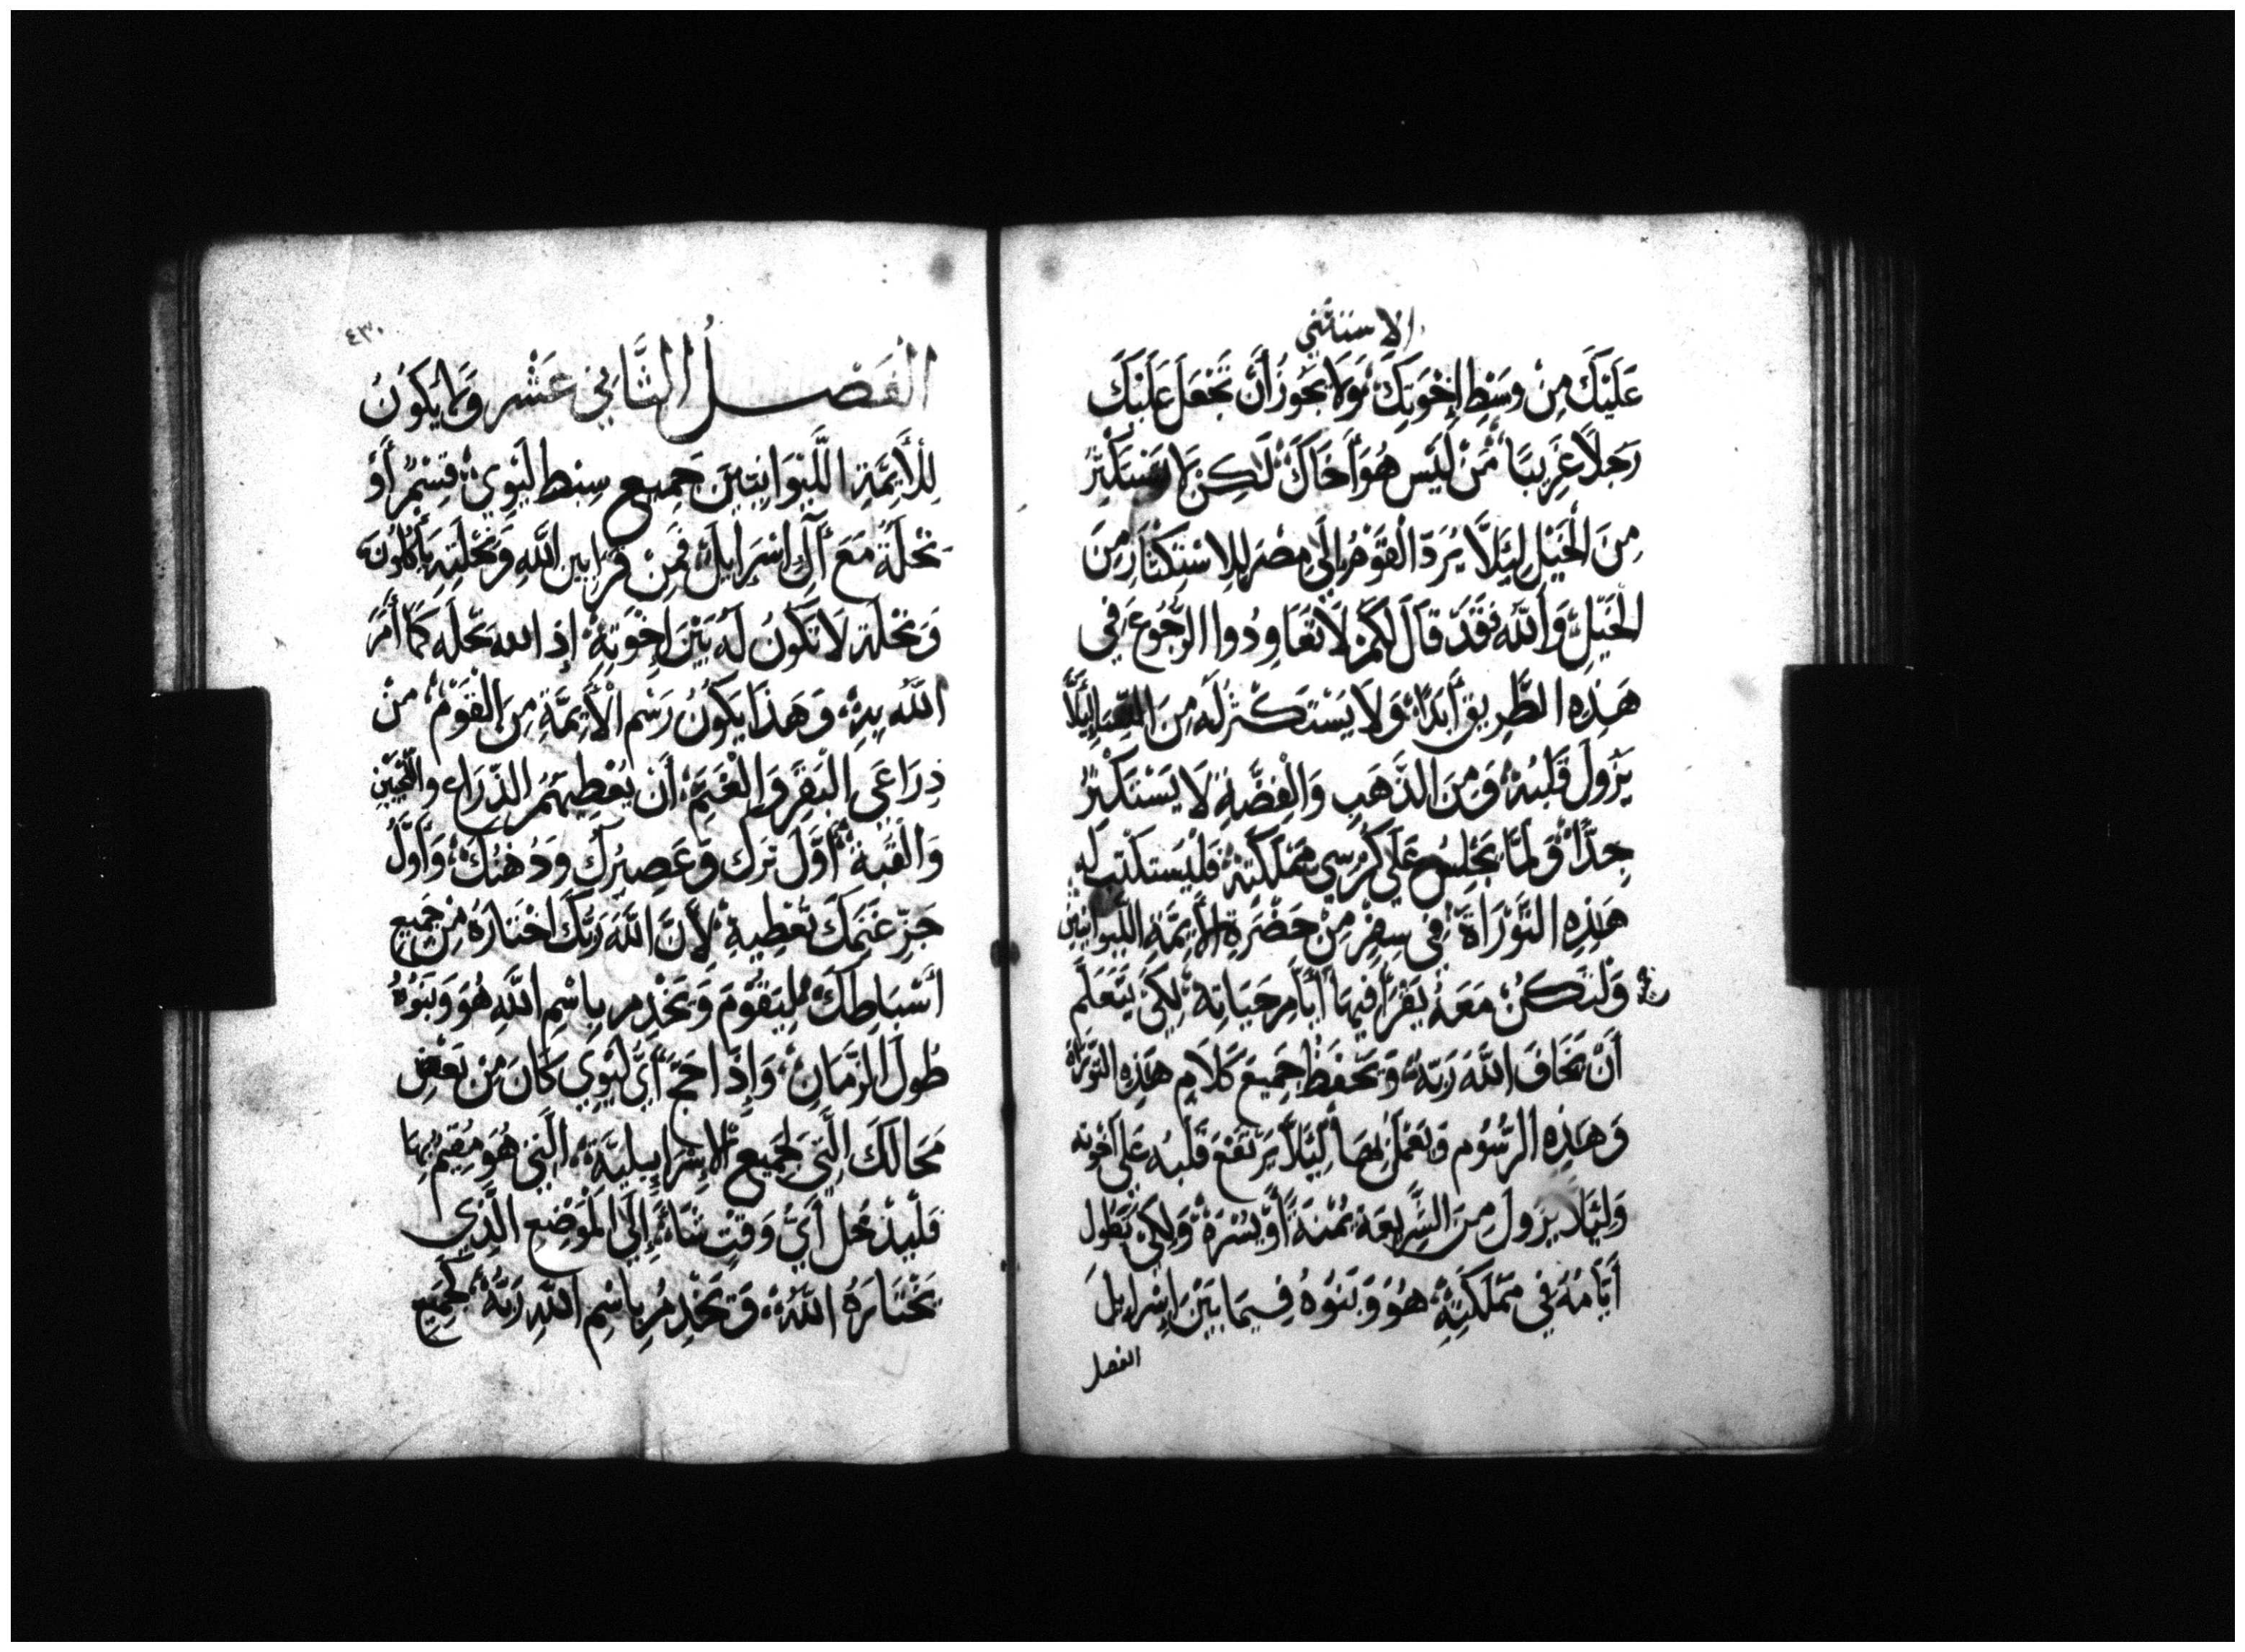 الاستثني
عَلَيْكَ مِنْ وَسَطِ إِخْوَتِكَ وَلَا يَجُوزُ أَنْ تَجْعَلَ عَلَيْكَ
رَجُلًا غَرِيبًا مَنْ لَيْسَ هُوَ أَخَاكَ لَكِنْ لَا يَسْتَكْثِرُ
مِنَ الْخَيْلِ لِئَلَّا يَرُدَّ الْقَوْمَ إِلَى مِصْرَ لِلِاسْتِكْثَارِ مِنَ
الْخَيْلِ وَاللَّهُ فَقَدْ قَالَ لَكُمْ لَا تُعَاوِدُوا الرُّجُوعَ فِي
هَذِهِ الطَّرِيقِ أَبَدًا وَلَا يَسْتَكْثِرْ لَهُ مِنَ لِئَلَّا
يَزُولَ قَلْبُهُ وَمِنَ الذَّهَبِ وَالْفِضَّةِ لَا يَسْتَكْثِرُ
جِدًّا وَلَمَّا يَجْلِسُ عَلَى كُرْسِي مَمْلَكَتِهِ فَلْيَسْتَكْتِبْ لَهُ
هَذِهِ التَّوْرَاةَ فِي سِفْرٍ مِنْ حَضْرَةِ الْأَيِمَّةِ اللِّيوَانِيِّينَ
وَلْتَكُنْ مَعَهُ يَقْرَأُ فِيهَا أَيَّامَ حَيَاتِهِ لِكَيْ يَتَعَلَّمَ
أَنْ يَخَافَ اللَّهَ رَبَّهُ وَيَحْفَظْ جَمِيعَ كَلَامِ هَذِهِ التَّوْرَاةِ
وَهَذِهِ الرُّسُومِ وَيَعْمَلَ بِهَا لِئَلَّا يَرْتَفِعَ قَلْبُهُ عَلَى اخْوَتِهِ
وَلِئَلَّا يَزُولَ مِنَ الشَّرِيعَةِ يُمْنَةً أَوْ يُسْرَةً وَلِكَيْ تَطُولَ
أَيَّامُهُ فِي مَمْلَكَتِهِ هُوَ وَبَنُوهُ فِيمَا بَيْنَ إِسْرَايِلَ
الفصل
٤٣٠
الْفَصْلُ الثَّانِي عَشْر وَلَا يَكُونُ
لِلْأَيِمَّةِ اللِّيوَانِيِّينَ جَمِيعِ سِبْطِ لَيْوِي قِسْمٌ أَوْ
نِحْلَةٌ مَعَ آلِ اسْرَايِلَ فَمِنْ قَرَابِينِ اللَّهِ وَنِحْلَتِهِ يَأْكُلُونَ
وَنِحْلَةٌ لَا تَكُونُ لَهُ بَيْنَ إِخْوَتِهِ إِذِ اللهُ نِحْلَه كَمَا أَمَرَ
اللَّهُ بِهِ وَهَذَا يَكُونُ رَسْمَ الْأَيِمَّةِ مِنَ الْقَوْمِ مِنْ
ذِرَاعَيِ الْبَقَرِ وَالْغَنَمِ أَنْ يُعْطِيهُمُ الذِّرَاعَ وَاللَّحْيَيْنِ
وَالْقِبَةَ أَوَّلَ بُرِّكَ وَعَصِيرِكَ وَدُهْنِكَ وَأَوَّلَ
جَزِّ غَنَمِكَ تُعْطِيهِ لِأَنَّ اللَّهَ رَبَّكَ اخْتَارَهُ مِنْ جَمِيعِ
أَسْبَاطِكَ لِيَقُومَ وَيَخْدِمَ بِاسْمِ اللَّهِ هُوَ وَبَنُوهُ
طُولَ الزَّمَانِ وَإِذَا حَجَّ أَيُّ لَيْوِي كَانَ مِنْ بَعْضِ
مَحَالِّكَ الَّتِي لِجَمِيعِ الْإِسْرَايِيلِيَّةِ الَّتِي هُوَ مُقِيمٌ بِهَا
فَلْيَدْخُلْ أَيَّ وَقْتٍ شَاءَ إِلَى الْمَوْضِعِ الَّذِي
يَخْتَارَهُ اللَّهُ وَيَخْدِمُ بِاسْمِ اللَّهِ رَبِّهُ كَجَمِيعِ